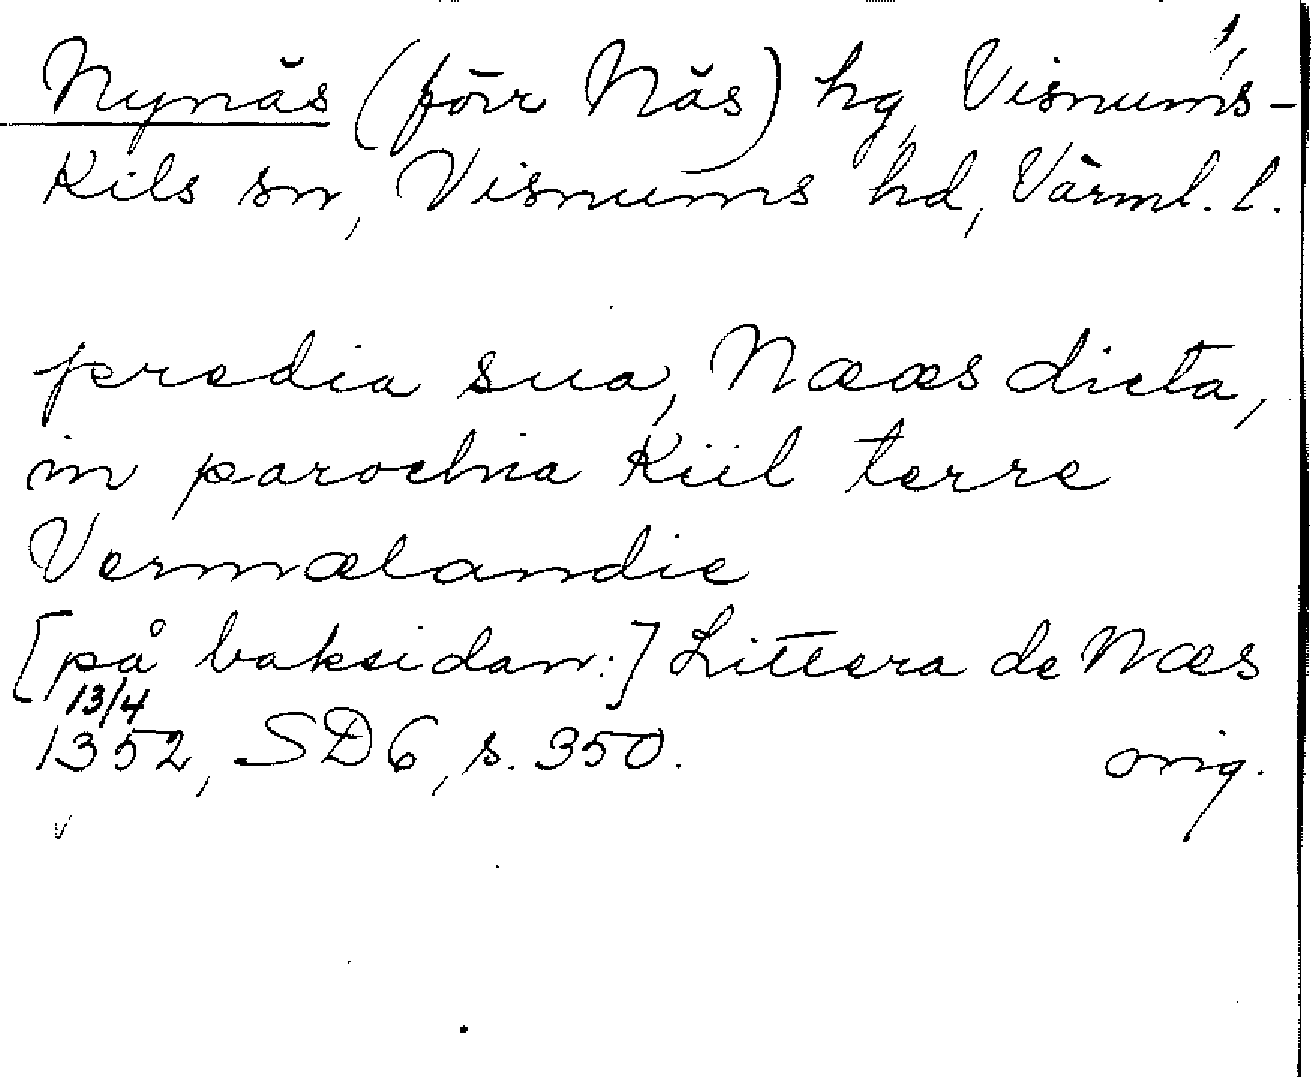 1,
Nynäs (förr Näs) hg, Visnums-
Kils sn, Visnums hd, Värml. l.
predia sua, Nææs dicta,
in parochia Kiil terre
Vermælandie
[på baksidan:] Littera de Næs
13/4
1352, SD 6, s. 350. orig.
v